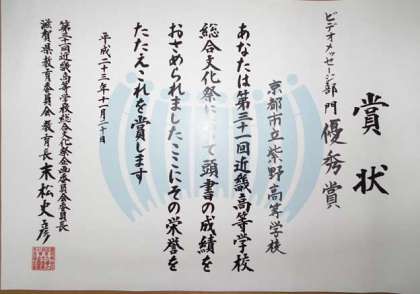 賞状
ビデオメッセージ部門 優秀賞
京都市立紫野高等学校
あなたは第三十一回近畿高等学校
総合文化祭において頭書の成績を
おさめられましたここにその栄誉を
たたえこれを賞します
平成二十三年十一月二十日
第三十一回近畿高等学校総合文化祭企画委員会委員長
滋賀県教育委員会教育長 末松史彦